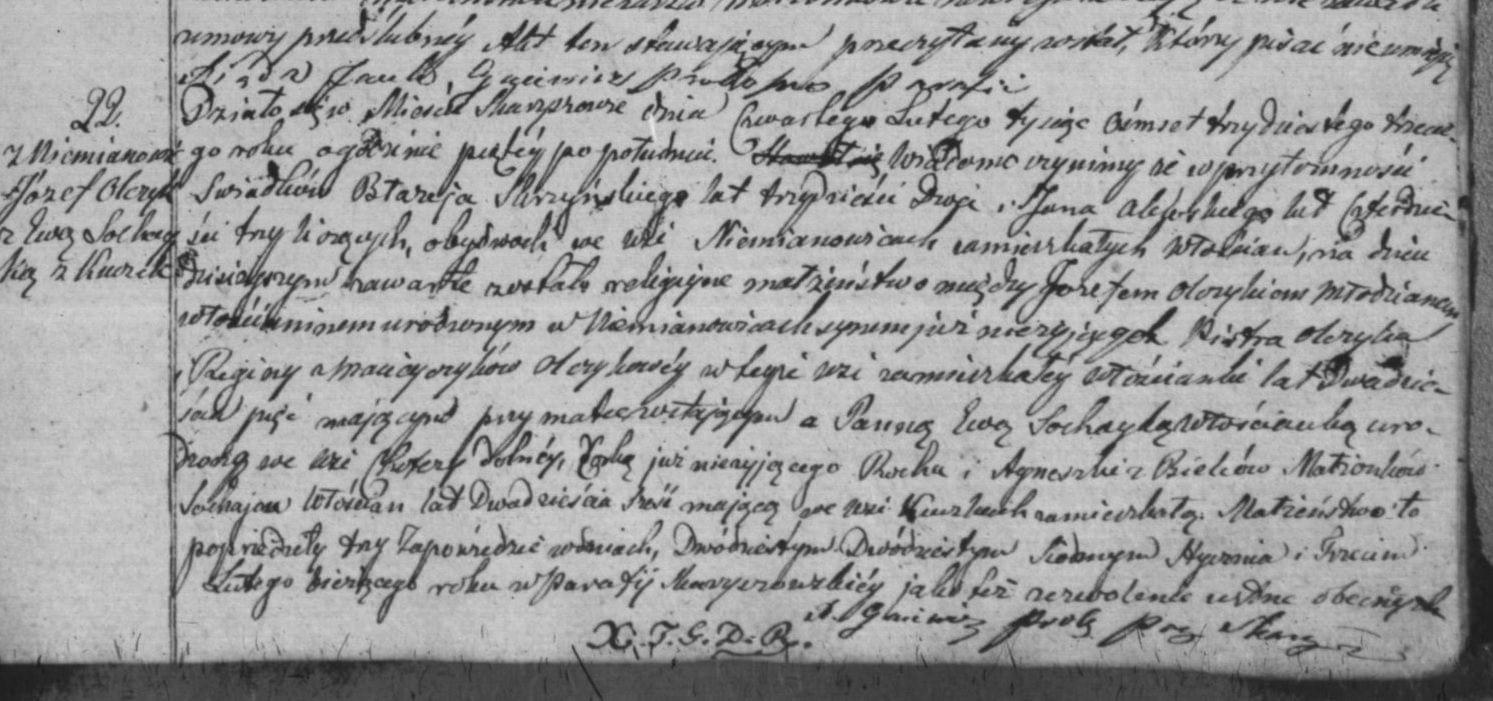 umowy przedślubnéy Akt ten stawaiącym przeczytany został, Który pisać nie umieią
22.
z Niemianowic
Józef Olczyk
z Ewą Sochay
ką z Kuczek
Działo się w Mieście Skaryszowie dnia Czwartego Lutego tysiąc ośmset trzydziestego trzeci-
go roku o godzinie piątéy po południu. Wiadomo czynimy że w przytomności
Swiadków Błażeja Skrzyńskiego lat trzydzieści Dwa i Jana lat Czterdzie-
ści trzy liczących, obydwóch we wsi Niemianowicach zamieszkałych Włościan, na dniu
dzisieyszym zawarte zostało religijne małżeństwo między Józefem Olczykiem Młodzianem
włościaninem urodzonym w Niemianowicach synem już nieżyjących Piotra Olczyka
i Reginy z Olczykowéy w teyże wsi zamieszkałéy włościanki lat Dwadzie-
ścia pięć mającym przy matce zostającym a Panną Ewą Sochayką włościanką uro-
dzoną we wsi dolnéy, Córką już nieżyjącego Rocha i Agnieszki z Bielów Małżonków
Sochajów Włościan lat Dwadzieścia sześć mającą we wsi Kuczkach zamieszkałą. Małżeństwo to
poprzedziły trzy Zapowiedzie w dniach, Dwódziestym Dwódziestym Siódmym Stycznia i Trzecim
Lutego bieżącego roku w Parafij Skaryszewskiéy jako też zezwolenie ustne obecnych
X. J. G. D. P.